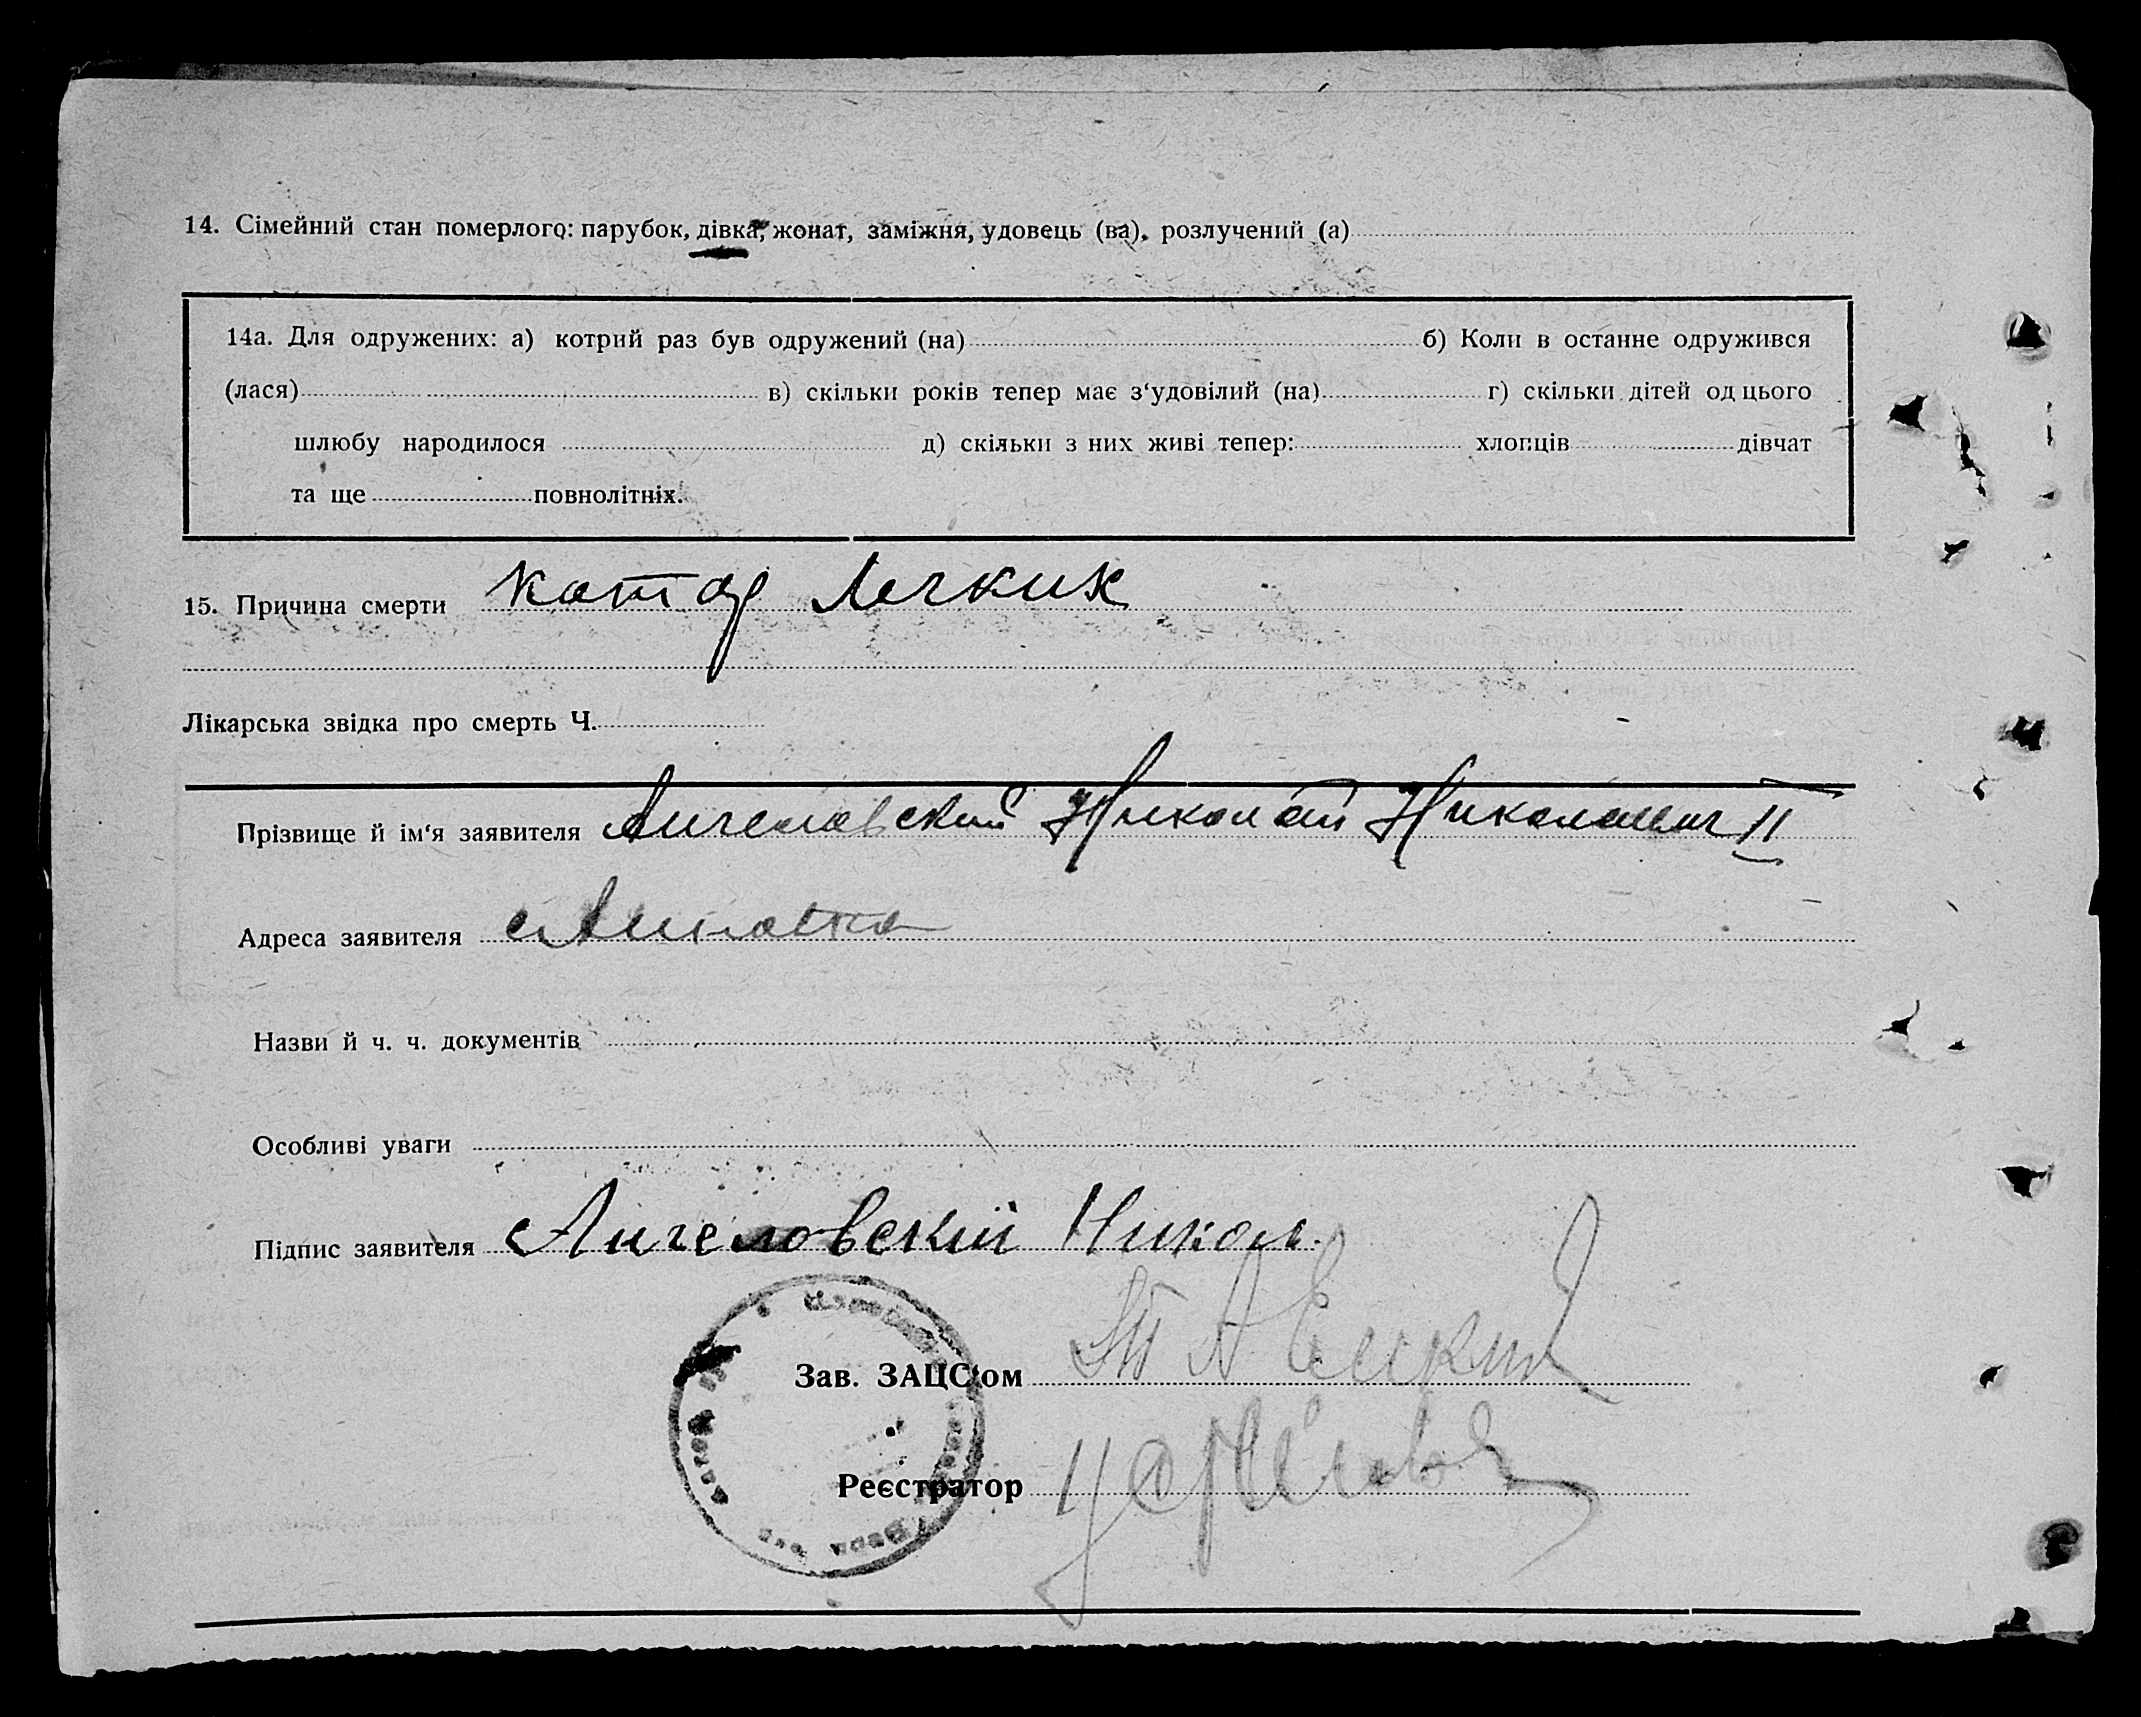 14. Сімейний стан померлого: парубок, дівка, жонат, заміжня, удовець (ва), розлучений (а)
14а. Для одружених: а) котрий раз був одружений (на) б) Коли в останне одружився
(лася) в) скільки років тепер має з‘удовілий (на) г) скільки дітей од цього
шлюбу народилося д) скільки з них живі тепер: хлопців дівчат
та ще повнолітніх.
15. Причина смерти Катар Легких
Лікарська звідка про смерть Ч.
Прізвище й ім‘я заявителя Ангеловский Николай Николаевич II
Адреса заявителя
Назви й ч. ч. документів
Особливі уваги
Підпис заявителя Ангеловский Никол.
Зав. ЗАЦС‘ом
Реєстратор